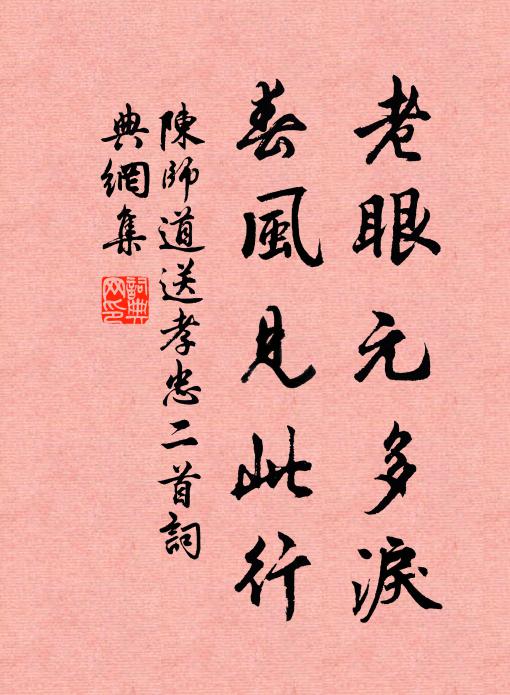 老眼元多淚
春風見此行
陳師道送孝忠二首詞
典網集
詞典
网印